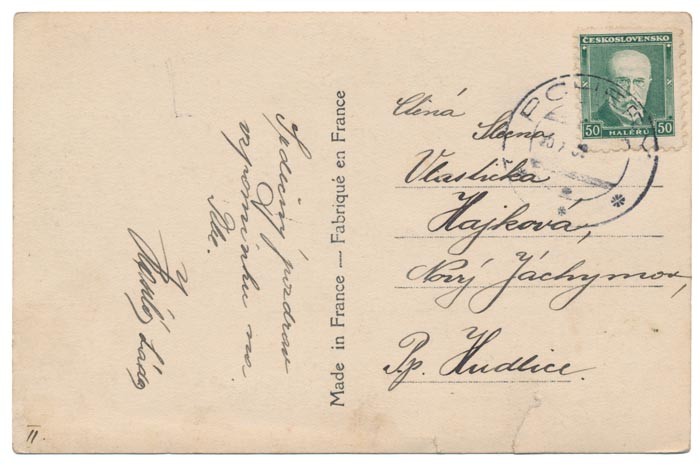 ČESKOSLOVENSKO
50 HALÉŘŮ 50
Ctěná
Slečna
Vlastička
Hajková,
Nový Jáchymov,
Pp. Hudlice.
Made in France — Fabriqué en France
Srdečný pozdrav
vzpomínku na
Láďa
II